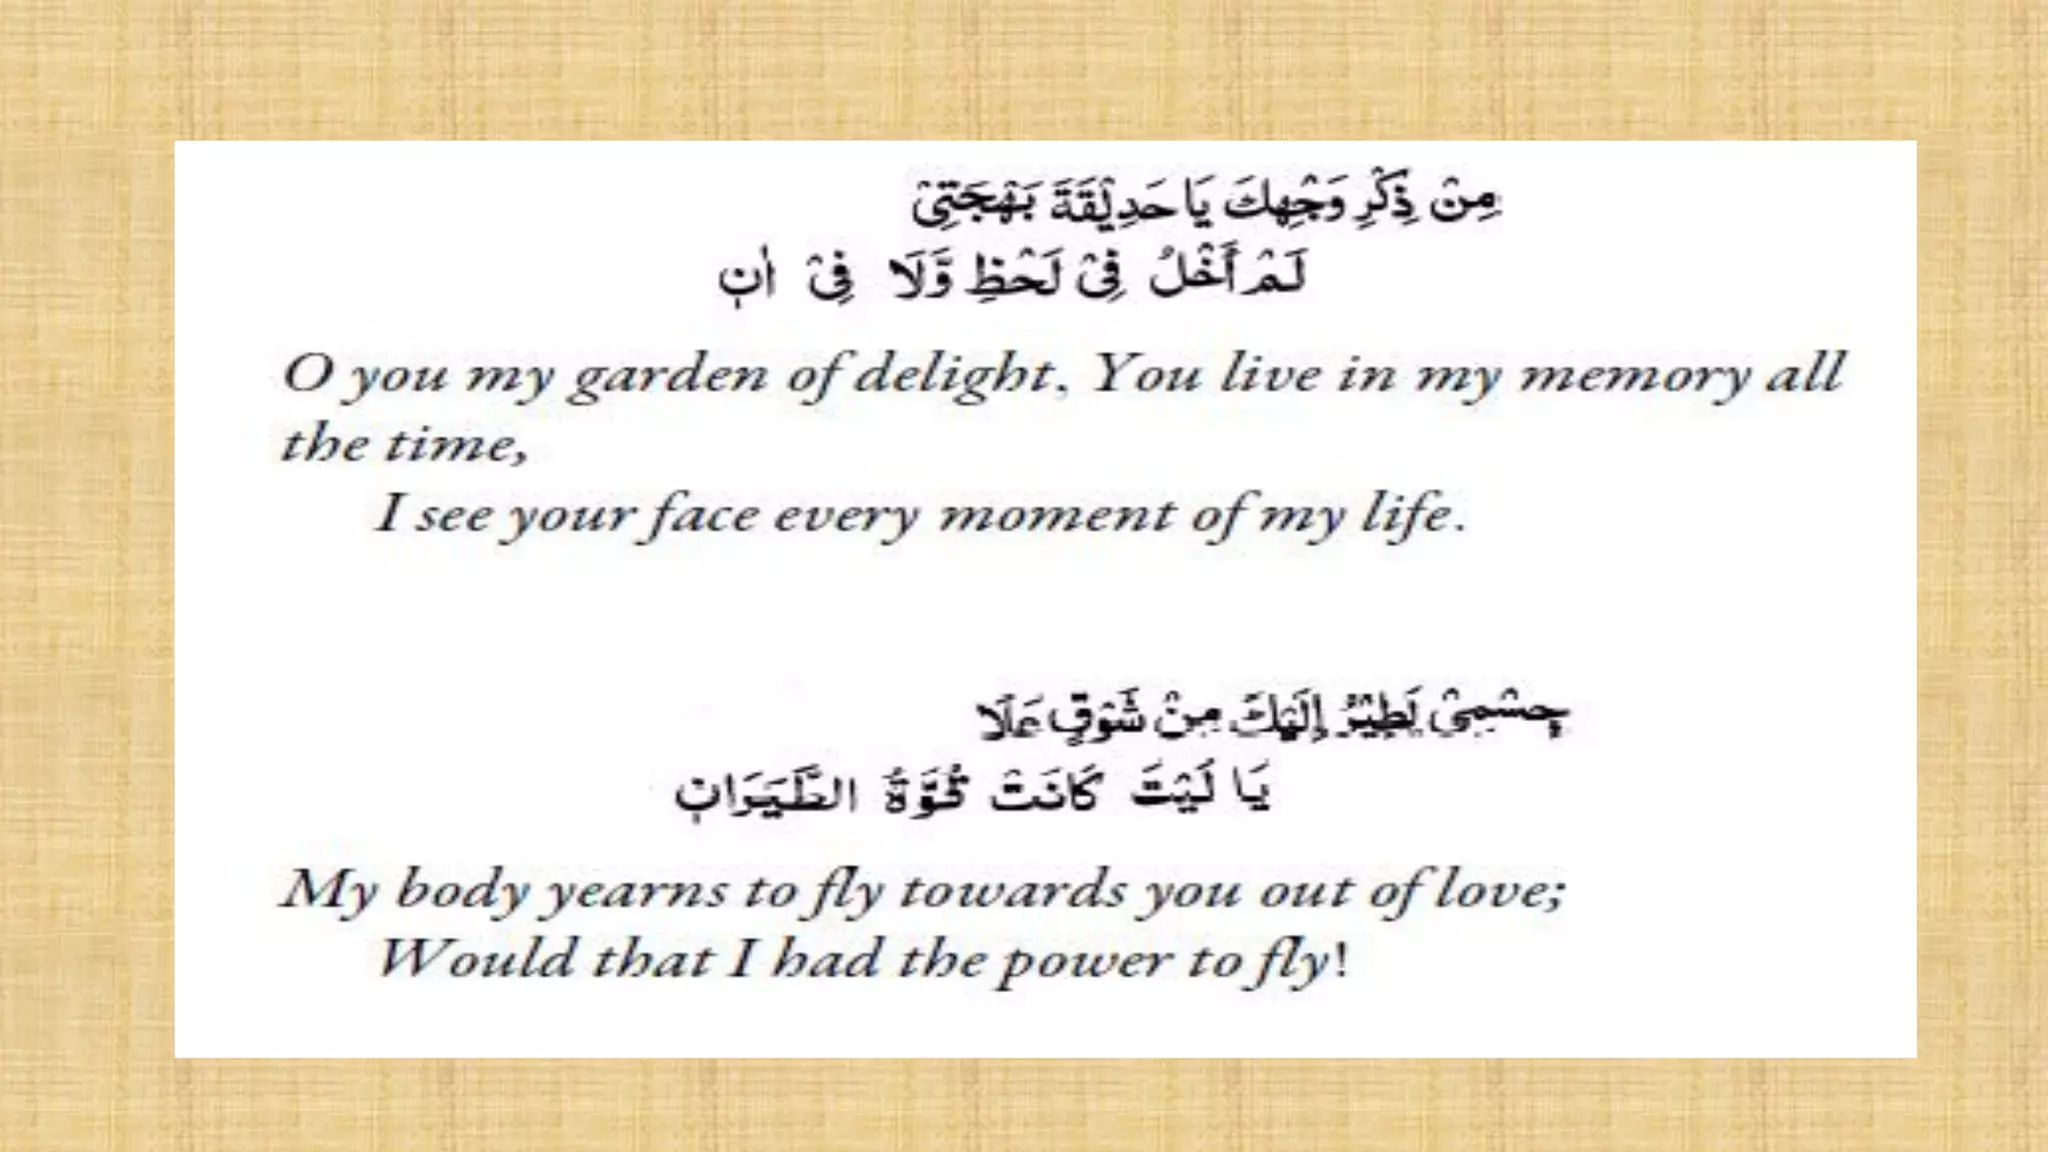 مِنْ ذِكْرِ وَجْهِكَ يَا حَدِيْقَةَ بَهْجَتِيْ
لَمْ أَخْلُ فِيْ لَحْظٍ وَّلَا فِيْ اٰنٖ
O you my garden of delight, You live in my memory all
the time,
I see your face every moment of my life.
جِسْمِيْ يَطِيْرُ إِلَيْكَ مِنْ شَوْقٍ عَلَا
يَا لَيْتَ كَانَتْ قُوَّةُ الطَّيَرَانٖ
My body yearns to fly towards you out of love;
Would that I had the power to fly!